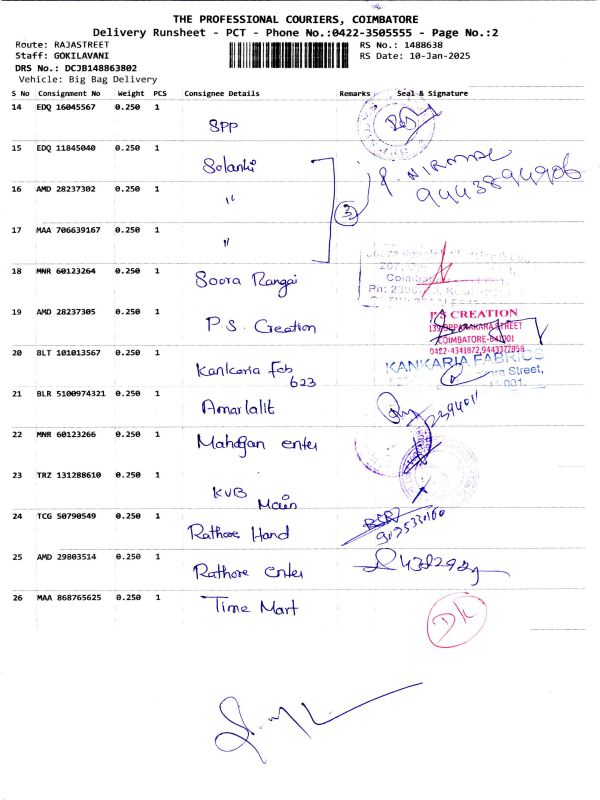 THE PROFESSIONAL COURIERS, COIMBATORE
Delivery Runsheet - PCT - Phone No.:0422-3505555 - Page No.:2
Route: RAJASTREET RS No.: 1488638
Staff: GOKILAVANI RS Date: 10-Jan-2025
DRS No.: DCJB148863802
Vehicle: Big Bag Delivery
S No Consignment No Weight PCS Consignee Details Remarks Seal & Signature
14 EDQ 16045567 0.250 1 SPP
15 EDQ 11845040 0.250 1 Solanki
P. NIRMAL
9443894906
16 AMD 28237302 0.250 1 "
3
17 MAA 706639167 0.250 1 "
18 MNR 60123264 0.250 1 Soora Rangai
19 AMD 28237305 0.250 1 P.S. Creation
P S CREATION
COIMBATORE-641001
0422-4341872,9443377098
20 BLT 101013567 0.250 1 Kankaria Fab
623
KANKARIA FABRICS
Street,
21 BLR 5100974321 0.250 1 Amarlalit
22 MNR 60123266 0.250 1 Mahajan enter
23 TRZ 131288610 0.250 1 KVB
Main
24 TCG 50790549 0.250 1 Rathore Hand
25 AMD 29803514 0.250 1 Rathore enter
26 MAA 868765625 0.250 1 Time Mart
DK